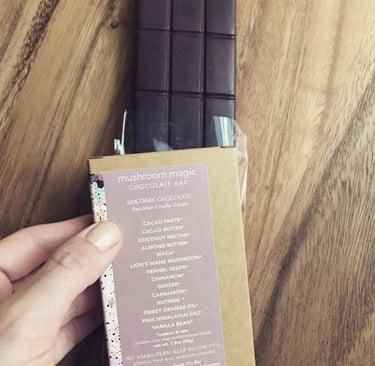 mushroom magic
CHOCOLATE BAR
65% DARK CHOCOLATE
Peruvian Criollo Cacao
CACAO PASTE*
CACAO BUTTER*
COCONUT NECTAR*
ALMOND BUTTER*
MACA*
LION'S MANE MUSHROOM*
FENNEL SEEDS*
CINNAMON*
GINGER*
CARDAMOM*
NUTMEG*
SWEET ORANGE OIL*
PINK HIMALAYAN SALT
VANILLA BEAN*
*organic & raw
NO STABILIZERS! KEEP BELOW 75°